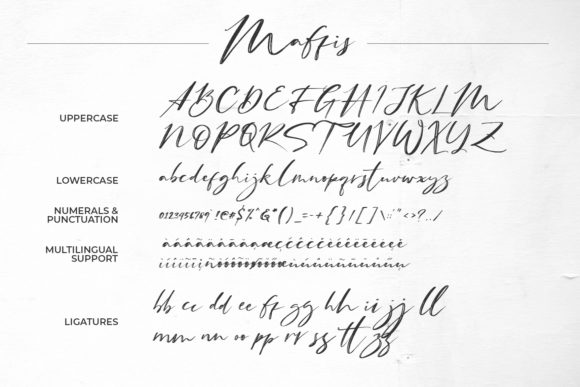 Maffis
UPPERCASE
ABCDEFGHIJKLM
NOPQRSTUVWXYZ
LOWERCASE
abcdefghijklmnopqrstuvwxyz
NUMERALS &
PUNCTUATION
0123456789 !@#$%^&*()_=-+{}/[]\:;"'<>?.,/
MULTILINGUAL
SUPPORT
LIGATURES
bb cc dd ee ff gg hh ii jj ll
mm nn oo pp rr ss tt zz